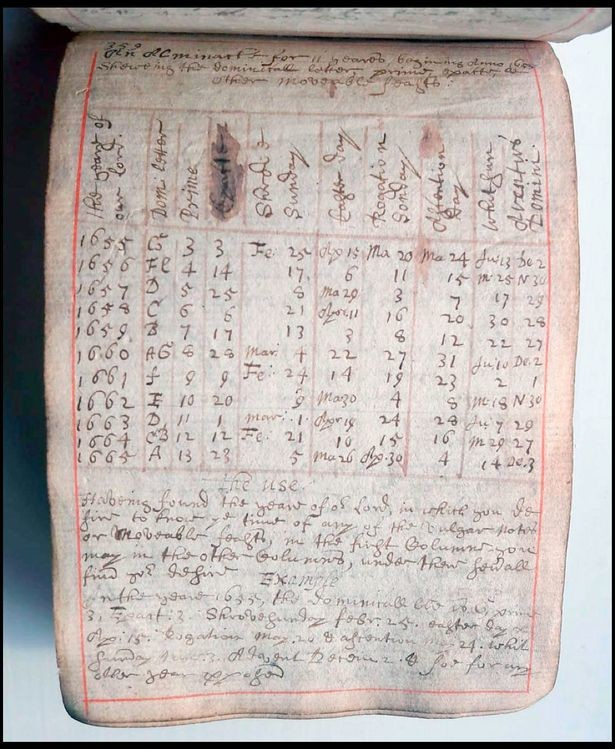 An Alminack for 11 yeares, begining Anno 1655
Shewing the dominicall letter prime Epactt &
other moveable feasts:
The yeare of our Lord. Dom letter Prime Epactt Shrove Sunday Easter day Rogation Sonday Assention Day Whitsun Adventus Domini.
1655 G 3 3 Fe: 25 Ap 15 Ma 20 Ma 24 Ju 13 De 2
1656 FE 4 14 17 6 11 15 M 25 N 30
1657 D 5 25 8 Ma 29 3 7 17 29
1658 C 6 6 21 Apr 11 16 20 30 28
1659 B 7 17 13 3 8 12 22 27
1660 AG 8 28 Mar: 4 22 27 31 Ju 10 De 2
1661 f 9 9 Fe: 24 14 19 23 2 1
1662 E 10 20 9 Ma 30 4 8 M 18 N 30
1663 D 11 1 mar: 1 Apr 19 24 28 Ju 7 29
1664 CB 12 12 Fe: 21 10 15 16 M 29 27
1665 A 13 23 5 Ma 26 Ap: 30 4 14 De 3
The use
Haveing found the yeare of or Lord, in which you de
sire to know ye time of any of the vulgar notes
or Moveable feasts, in the first Column you
may in the other Columns, under their severall
find yor desire
Example
In the yeare 1655, the dominicall is G, prime
3, Epact: 3. Shrovesunday Febr: 25. easter day
Apr. 15. Rogation May. 20 & assention may 24. whit
sunday June. 3. Advent Decem 2. & soe for any
other year